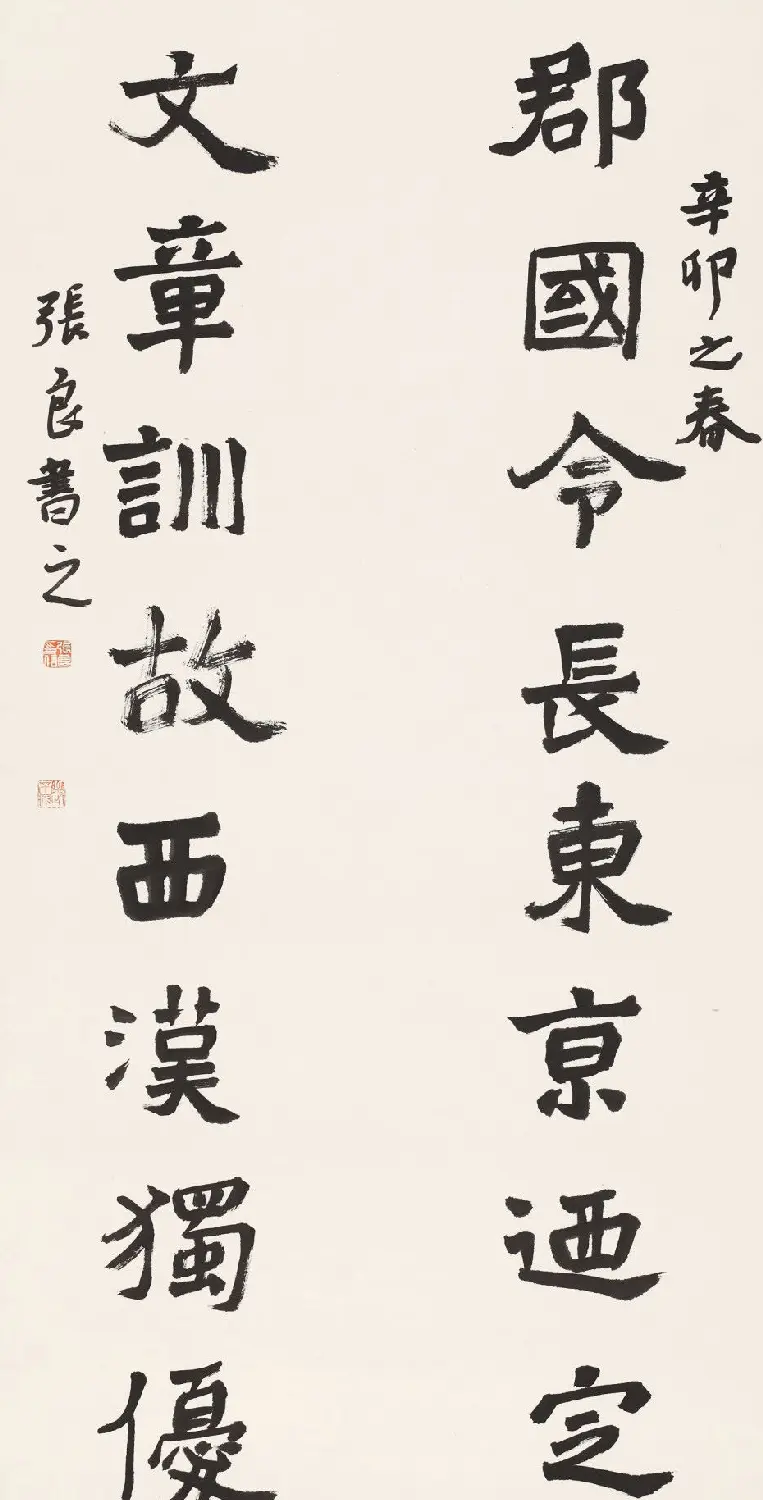 辛卯之春
郡國令長東京迺定
文章訓故西漢獨優
張良書之